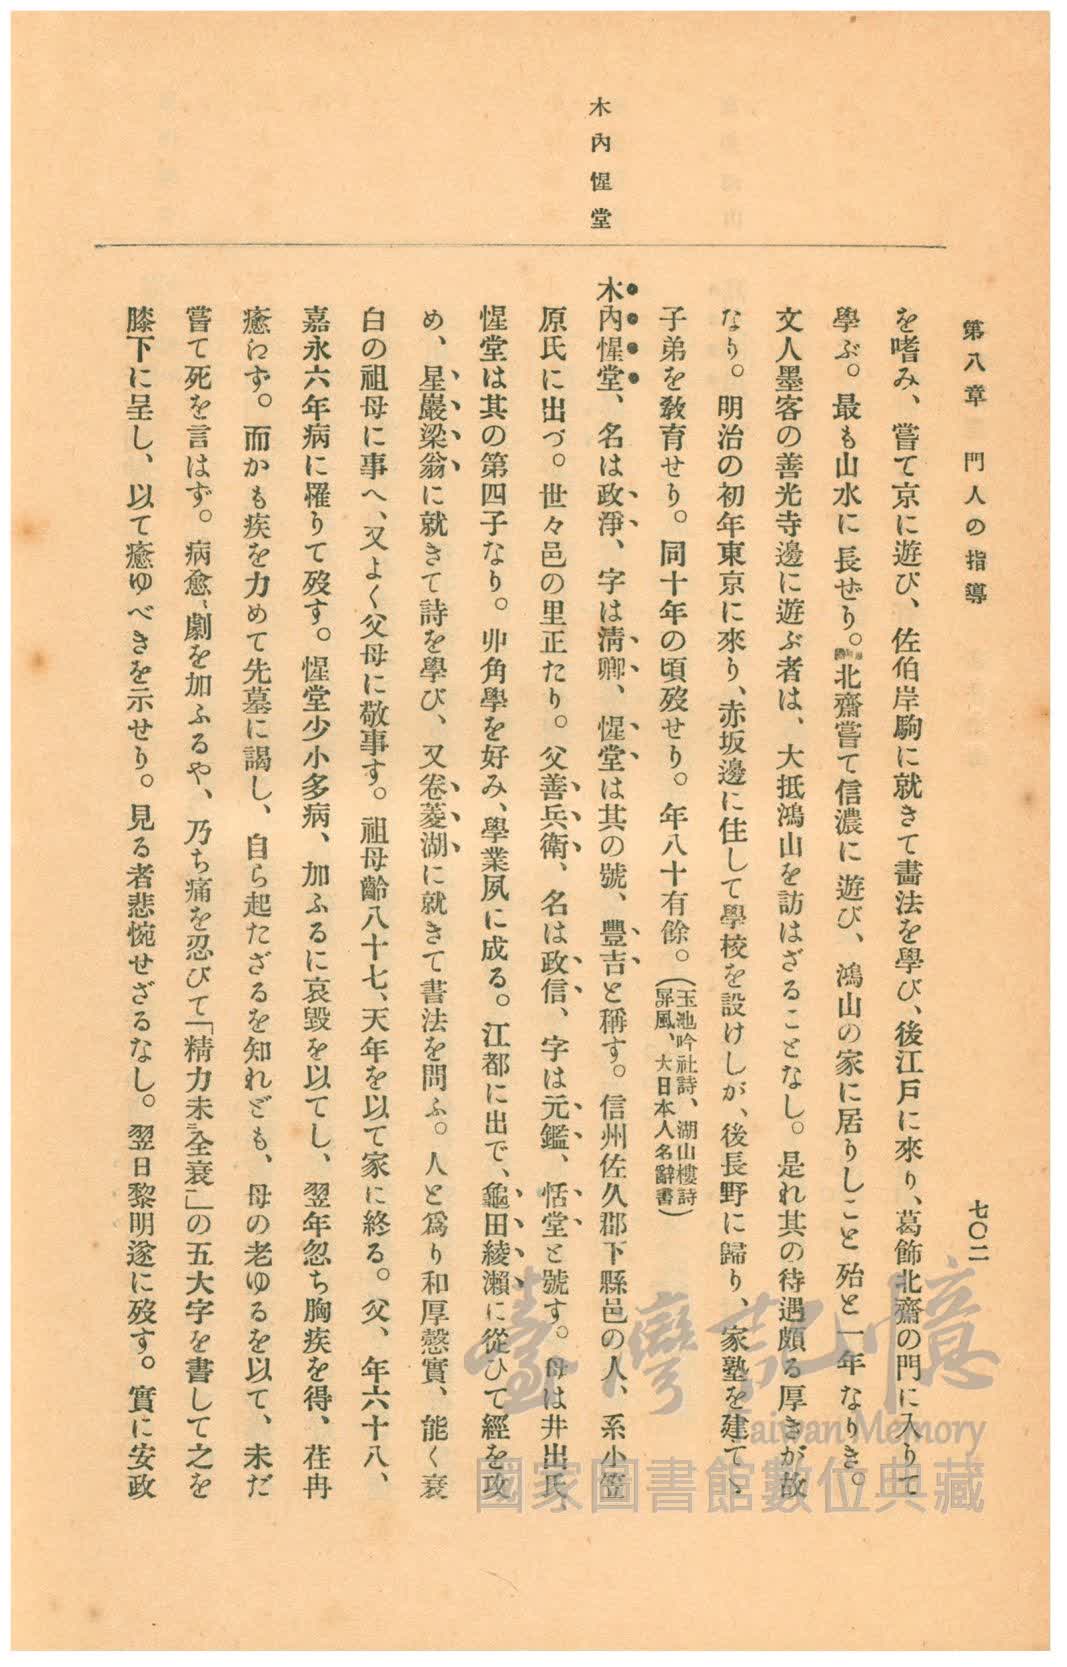 第八章 門人の指導
七〇二
木內惺堂
を嗜み、嘗て京に遊び、佐伯岸駒に就きて畫法を學び、後江戶に來り、葛飾北齋の門に入りて
學ぶ。最も山水に長ぜり。北齋嘗て信濃に遊び、鴻山の家に居りしこと殆と一年なりき。
文人墨客の善光寺邊に遊ぶ者は、大抵鴻山を訪はざることなし。是れ其の待遇頗る厚きが故
なり。明治の初年東京に來り、赤坂邊に住して學校を設けしが、後長野に歸り、家塾を建てゝ
子弟を敎育せり。同十年の頃歿せり。年八十有餘。(玉池吟社詩、湖山樓詩
屛風、大日本人名辭書)
木內惺堂、名は政淨、字は淸卿、惺堂は其の號、豐吉と稱す。信州佐久郡下縣邑の人、系小笠
原氏に出づ。世々邑の里正たり。父善兵衛、名は政信、字は元鑑、恬堂と號す。母は井出氏、
惺堂は其の第四子なり。丱角學を好み、學業夙に成る。江都に出で、龜田綾瀨に從ひて經を攻
め、星巖梁翁に就きて詩を學び、又卷菱湖に就きて書法を問ふ。人と爲り和厚愨實、能く衰
白の祖母に事へ、又よく父母に敬事す。祖母齡八十七、天年を以て家に終る。父、年六十八、
嘉永六年病に罹りて歿す。惺堂少小多病、加ふるに哀毀を以てし、翌年忽ち胸疾を得、荏冉
癒えず。而かも疾を力めて先墓に謁し、自ら起たざるを知れども、母の老ゆるを以て、未だ
嘗て死を言はず。病愈〻劇を加ふるや、乃ち痛を忍びて「精力未全衰」の五大字を書して之を
膝下に呈し、以て癒ゆべきを示せり。見る者悲惋せざるなし。翌日黎明遂に歿す。實に安政
臺灣記憶
Taiwan Memory
國家圖書館數位典藏